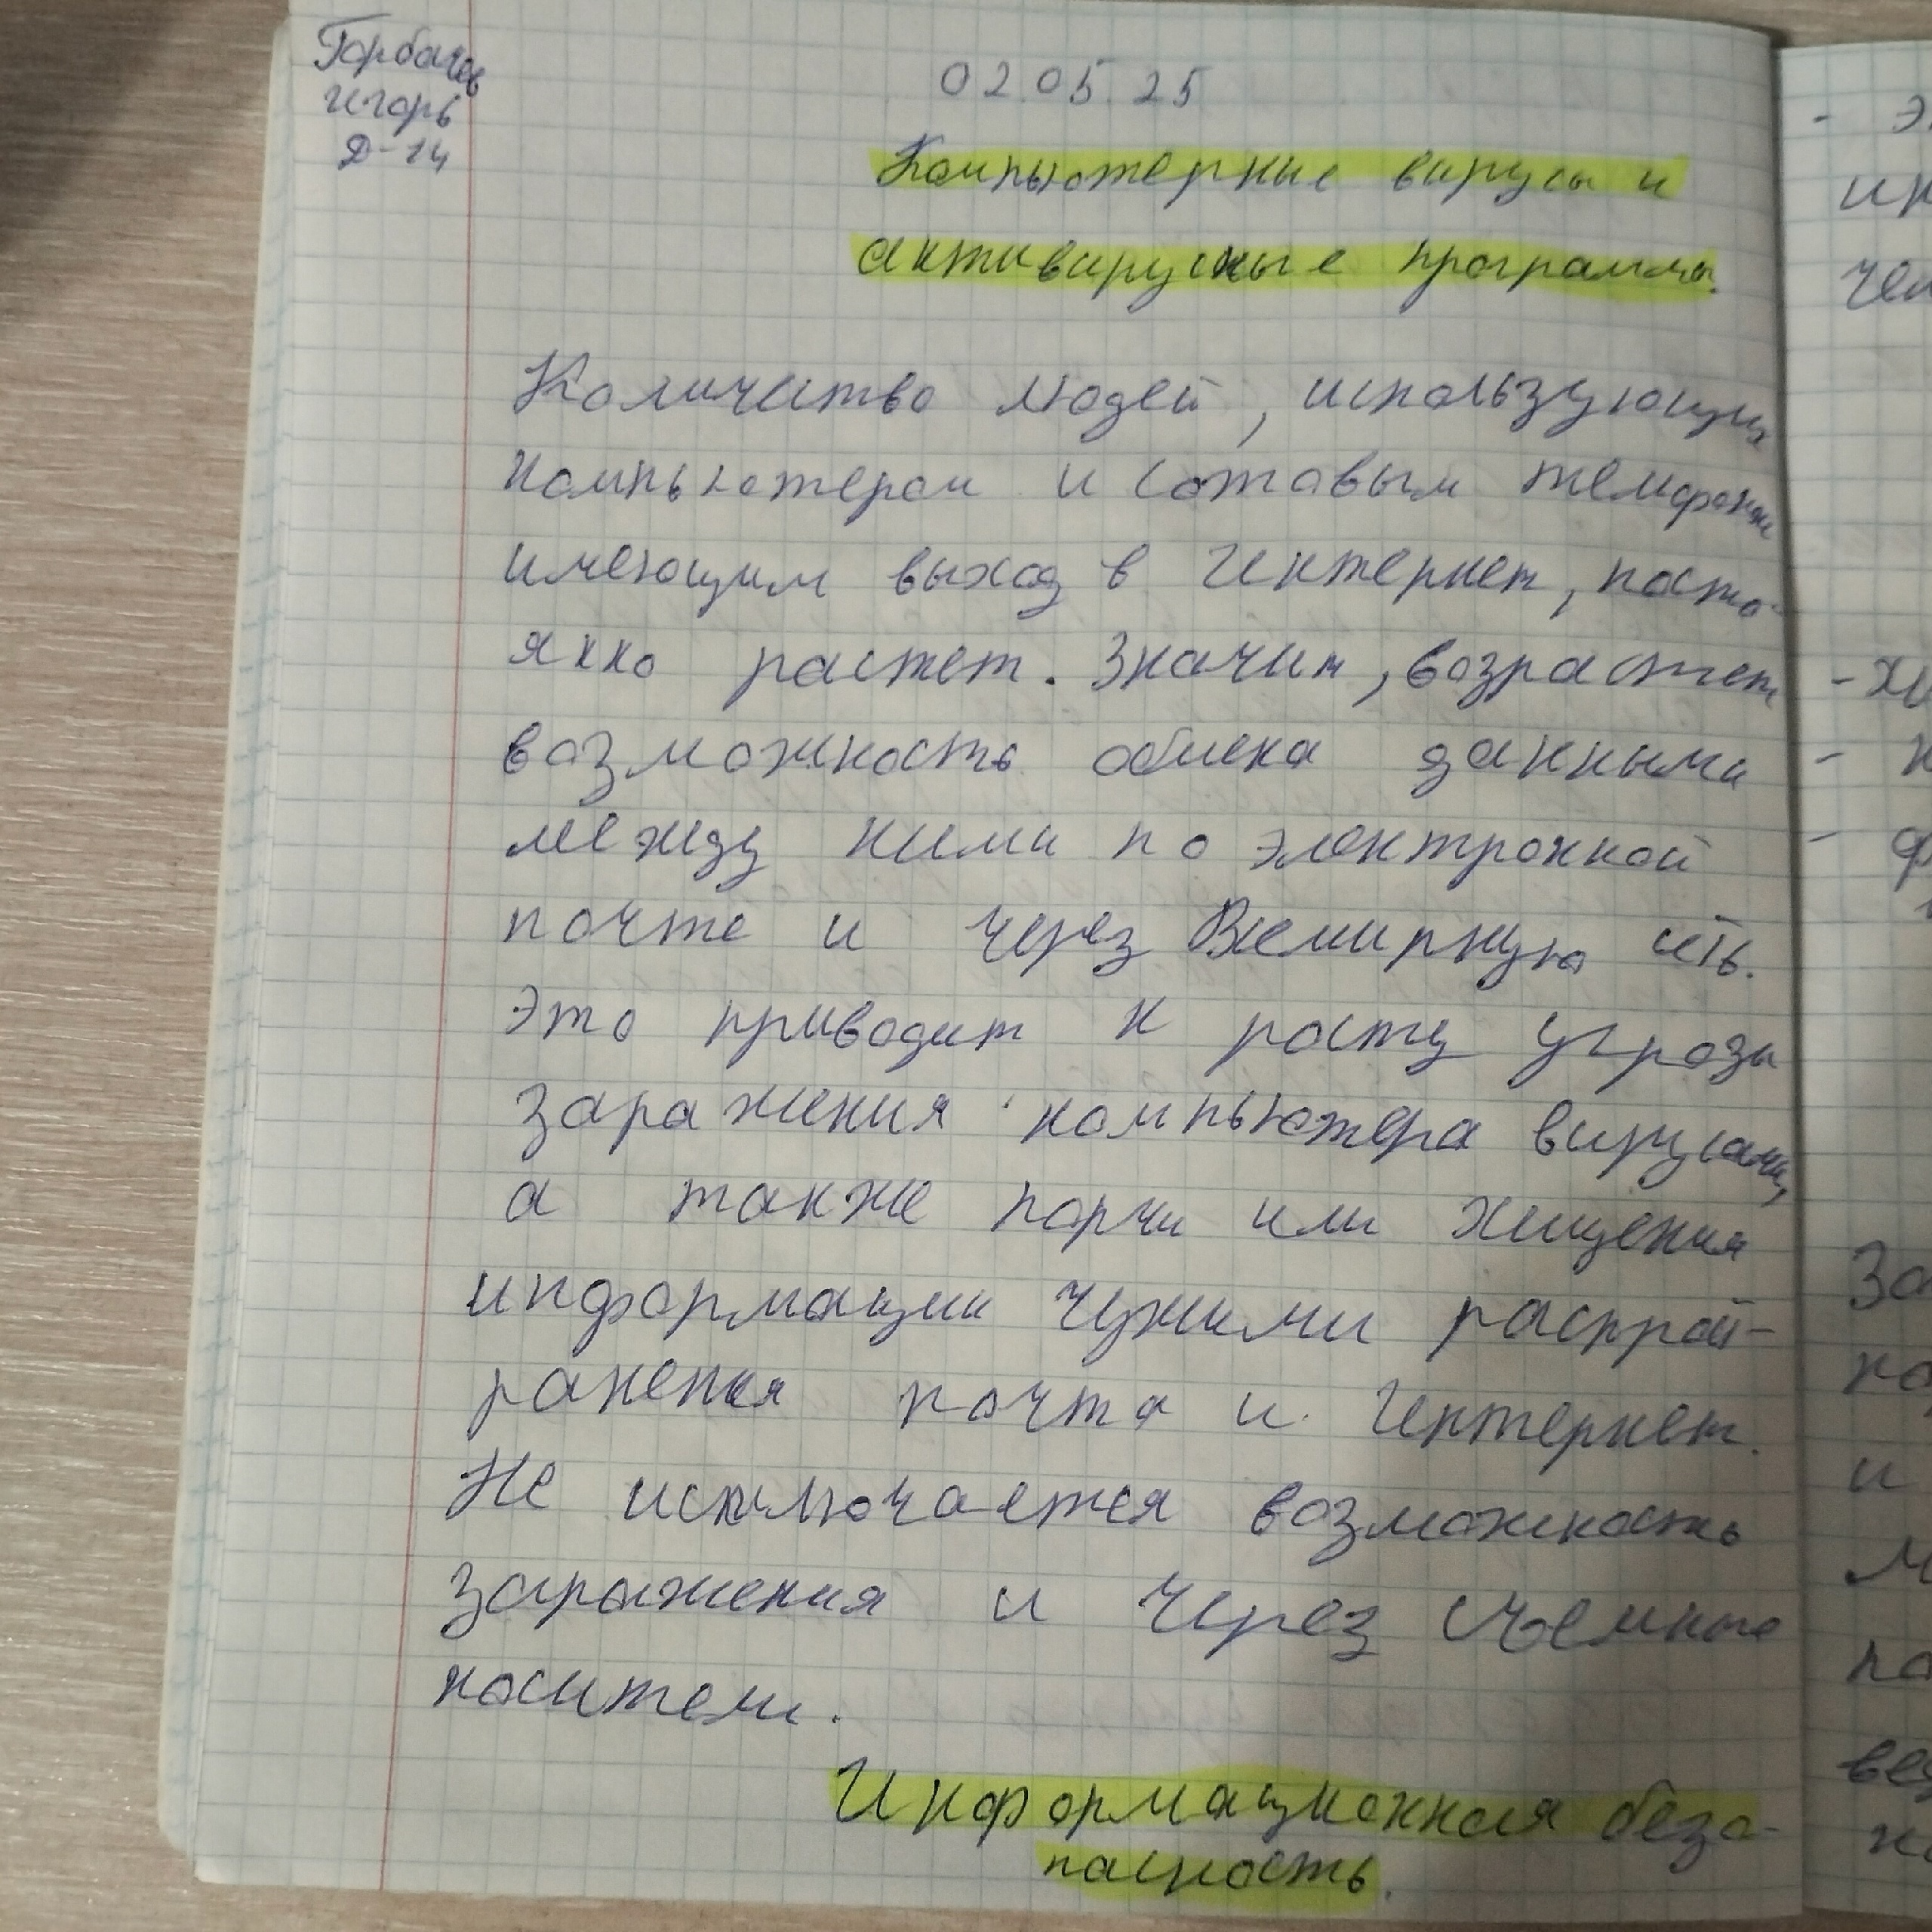 Горбачев
Игорь
Д-14
02.05.25
Компьютерные вирусы и
антивирусные программы.
Количество людей, использующих
компьютером и сотовым телефоном
имеющим выход в Интернет, посто-
янно растет. Значит, возрастет
возможность обмена данными
между ними по электронной
почте и через Всемирную сеть.
Это приводит к росту угрозы
заражения компьютера вирусами,
а также порчи или хищения
информации чужими
ранения почта и Интернет.
Не исключается возможность
заражения и через съемные
носители.
Информационная безо-
пасность.
- э
ин
чем
- хи
- к
- ф
За
по
и
м
по
вед
но